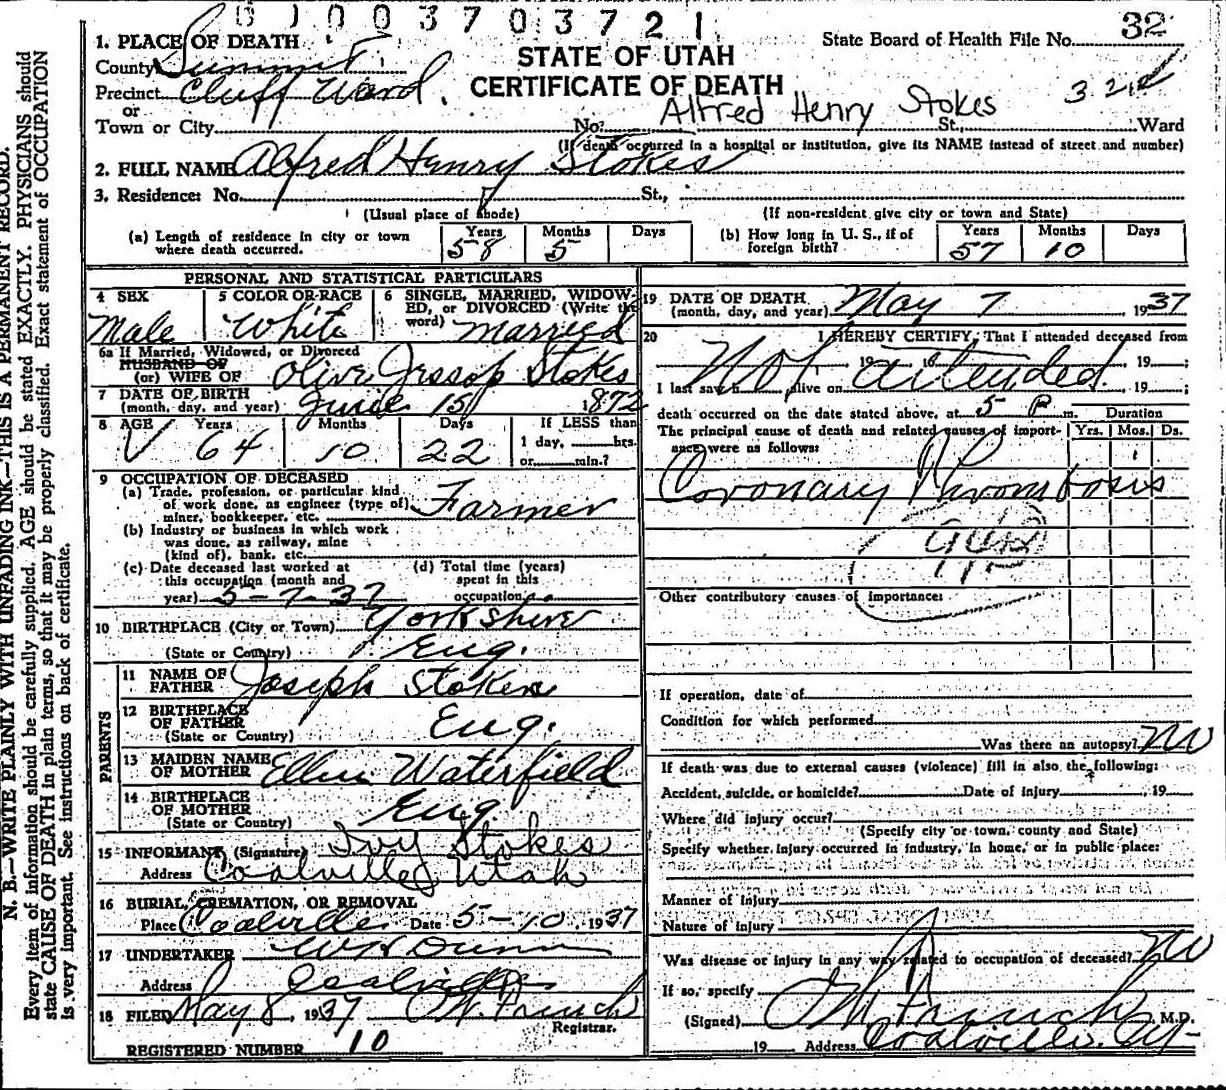 0 1 0 0 3 7 0 3 7 2 1
32
1. PLACE OF DEATH
STATE OF UTAH
State Board of Health File No.
County Summit
CERTIFICATE OF DEATH
Precinct Cluff Ward.
or
Alfred Henry Stokes
Town or City No. St., Ward
(If death occurred in a hospital or institution, give its NAME instead of street and number)
2. FULL NAME Alfred Henry Stokes
3. Residence: No. St.,
(Usual place of abode) (If non-resident give city or town and State)
(a) Length of residence in city or town where death occurred. Years 58 Months 5 Days
(b) How long in U. S., if of foreign birth? Years 57 Months 10 Days
PERSONAL AND STATISTICAL PARTICULARS
4 SEX Male
5 COLOR OR RACE White
6 SINGLE, MARRIED, WIDOWED, or DIVORCED (Write the word) married
6a If Married, Widowed, or Divorced
HUSBAND OF
(or) WIFE OF Olive Jessop Stokes
7 DATE OF BIRTH
(month, day, and year) June 15 1872
8 AGE Years 64 Months 10 Days 22 If LESS than 1 day, hrs. or min.?
9 OCCUPATION OF DECEASED
(a) Trade, profession, or particular kind
of work done, as engineer (type of)
miner, bookkeeper, etc. Farmer
(b) Industry or business in which work
was done, as railway, mine
(kind of), bank, etc.
(c) Date deceased last worked at
this occupation (month and
year) 5-7-37
(d) Total time (years)
spent in this
occupation
10 BIRTHPLACE (City or Town) Yorkshire
(State or Country) Eng.
PARENTS
11 NAME OF FATHER Joseph Stokes
12 BIRTHPLACE OF FATHER
(State or Country) Eng.
13 MAIDEN NAME OF MOTHER Ellen Waterfield
14 BIRTHPLACE OF MOTHER
(State or Country) Eng.
15 INFORMANT (Signature) Ivy Stokes
Address Coalville Utah
16 BURIAL, CREMATION, OR REMOVAL
Place Coalville Date 5-10, 1937
17 UNDERTAKER
Address Coalville
18 FILED May 8, 1937
Registrar.
REGISTERED NUMBER 10
19 DATE OF DEATH
(month, day, and year) May 7 1937
20 I HEREBY CERTIFY, That I attended deceased from
Not attended
19
I last saw h alive on , 19 ;
death occurred on the date stated above, at 5 P m.
Duration
The principal cause of death and related causes of importance were as follows:
Yrs. Mos. Ds.
Coronary Thrombosis
Other contributory causes of importance:
If operation, date of
Condition for which performed
Was there an autopsy? No
If death was due to external causes (violence) fill in also the following:
Accident, suicide, or homicide? Date of injury , 19
Where did injury occur?
(Specify city or town, county and State)
Specify whether injury occurred in industry, in home, or in public place:
Manner of injury
Nature of injury
Was disease or injury in any way related to occupation of deceased? No
If so, specify
(Signed) , M.D.
19 Address Coalville, Ut-
N. B.—WRITE PLAINLY WITH UNFADING INK—THIS IS A PERMANENT RECORD.
Every item of information should be carefully supplied. AGE should be stated EXACTLY. PHYSICIANS should
state CAUSE OF DEATH in plain terms, so that it may be properly classified. Exact statement of OCCUPATION
is very important. See instructions on back of certificate.